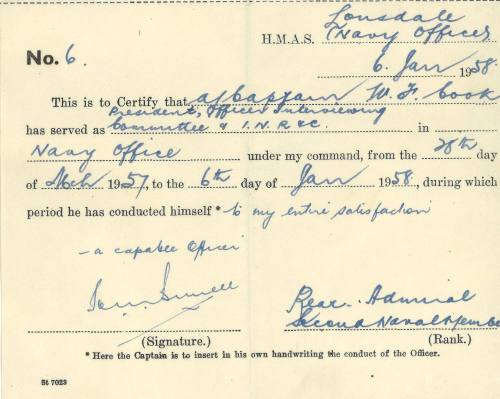 Lonsdale
H.M.A.S. (Navy Office)
No. 6.
6 Jan 1958.
This is to Certify that a/Captain W. F. Cook
President, Officer Interviewing
has served as Committee & I.N.R & C. in
Navy Office under my command, from the 28th day
of Mch 1957, to the 6th day of Jan 1958, during which
period he has conducted himself * to my entire satisfaction
- a capable Officer
Rear-Admiral
Second Naval Member
(Signature.) (Rank.)
* Here the Captain is to insert in his own handwriting the conduct of the Officer.
St 7023